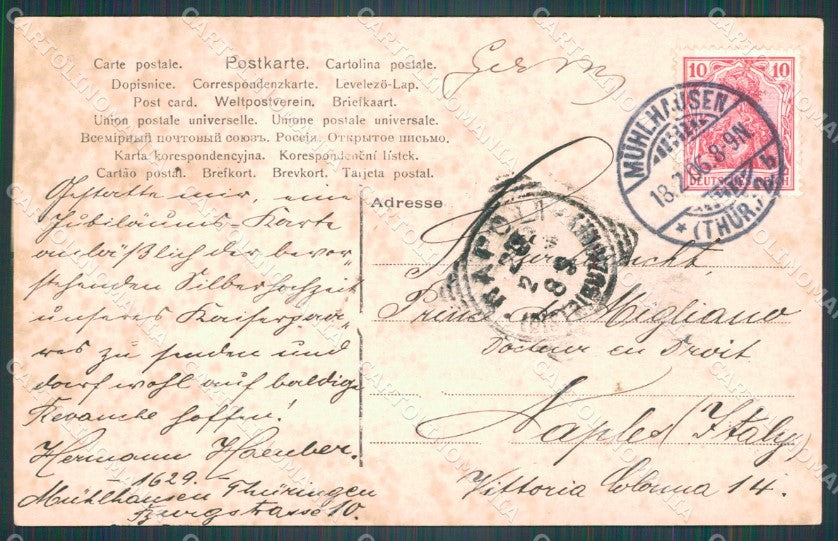 Carte postale. Postkarte. Cartolina postale.
Dopisnice. Correspondenzkarte. Levelező-Lap.
Post card. Weltpostverein. Briefkaart.
Union postale universelle. Unione postale universale.
Всемірный почтовый союзъ. Россія. Открытое письмо.
Karta korespondencyjna. Korespondenční lístek.
Cartão postal. Brefkort. Brevkort. Tarjeta postal.
Gestatte mir, eine
Jubiläums-Karte
anläßlich der bevor-
stehenden Silberhochzeit
unseres Kaiserpaa-
res zu senden und
darf wohl auf baldige
Revanche hoffen!
Hermann
1629.
Mühlhausen Thüringen
10.
10 10
MÜHLHAUSEN
18. 06. 8-9N.
* (THÜR.) * b
Adresse
NAPOLI
Migliano
Docteur en Droit
Naples (Italy)
Vittoria Colonna 14.
CARTOLINOMANIA